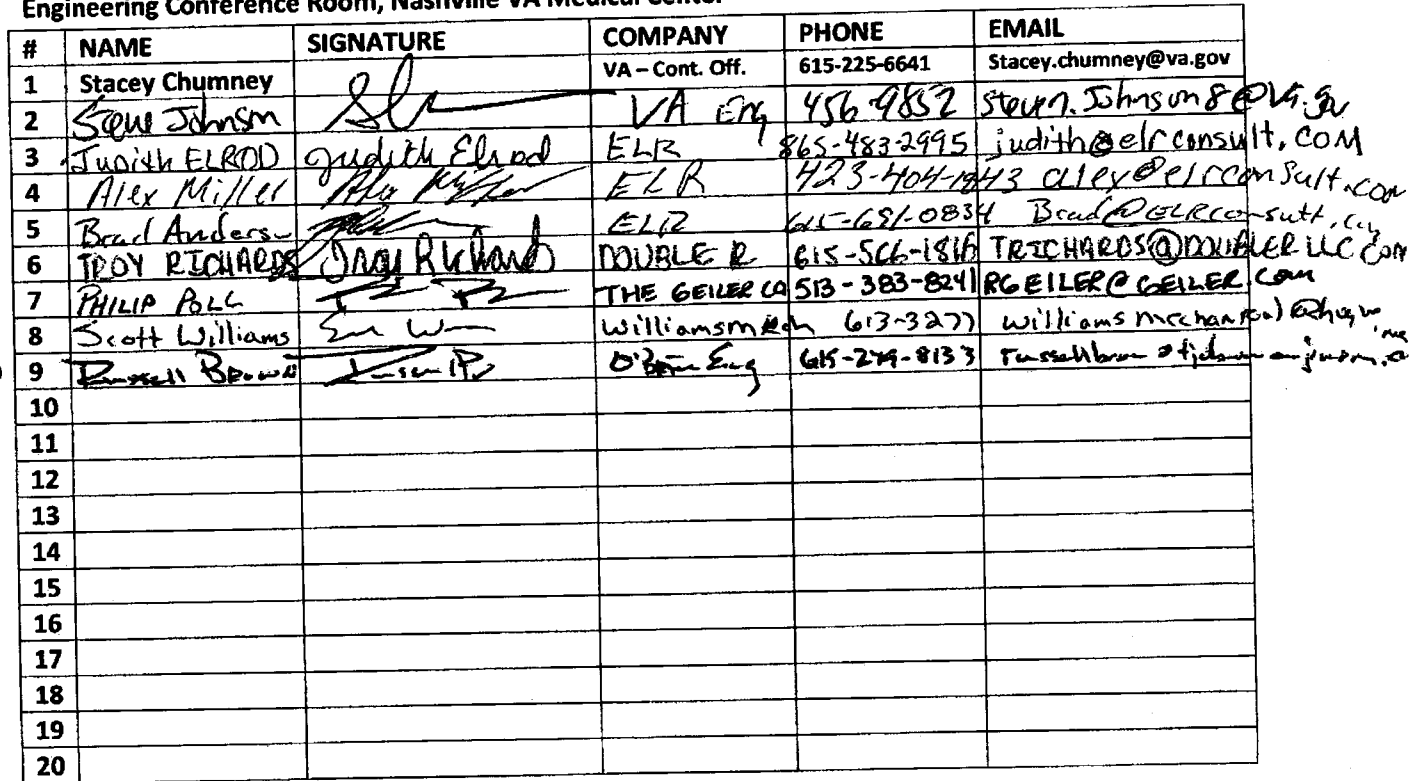 Engineering Conference Room, Nashville VA Medical Center
# NAME SIGNATURE COMPANY PHONE EMAIL
1 Stacey Chumney VA – Cont. Off. 615-225-6641 Stacey.chumney@va.gov
2 Steve Johnson VA Eng 456-9852 Steven.Johnson8@va.gov
3 Judith ELROD Judith Elrod ELR 865-483-2995 judith@elrconsult.COM
4 Alex Miller ELR 423-404-1943 alex@elrconsult.com
5 Brad ELR 615-691-0834 Brad@ELRconsult.
6 TROY RICHARDS Troy Richard DOUBLE R 615-566-1816 TRICHARDS@DOUBLERLLC.COM
7 PHILIP POLL THE GEILER CO 513-383-8241 RGEILER@GEILER.COM
8 Scott Williams 613-3277
9 Russell Brown 615-279-8133
10
11
12
13
14
15
16
17
18
19
20